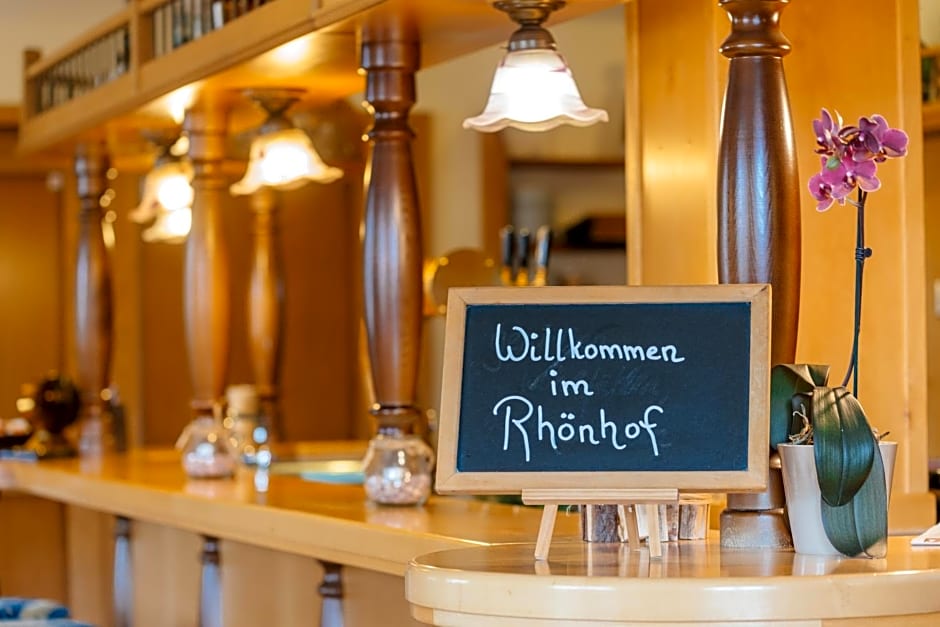 Willkommen
im
Rhönhof